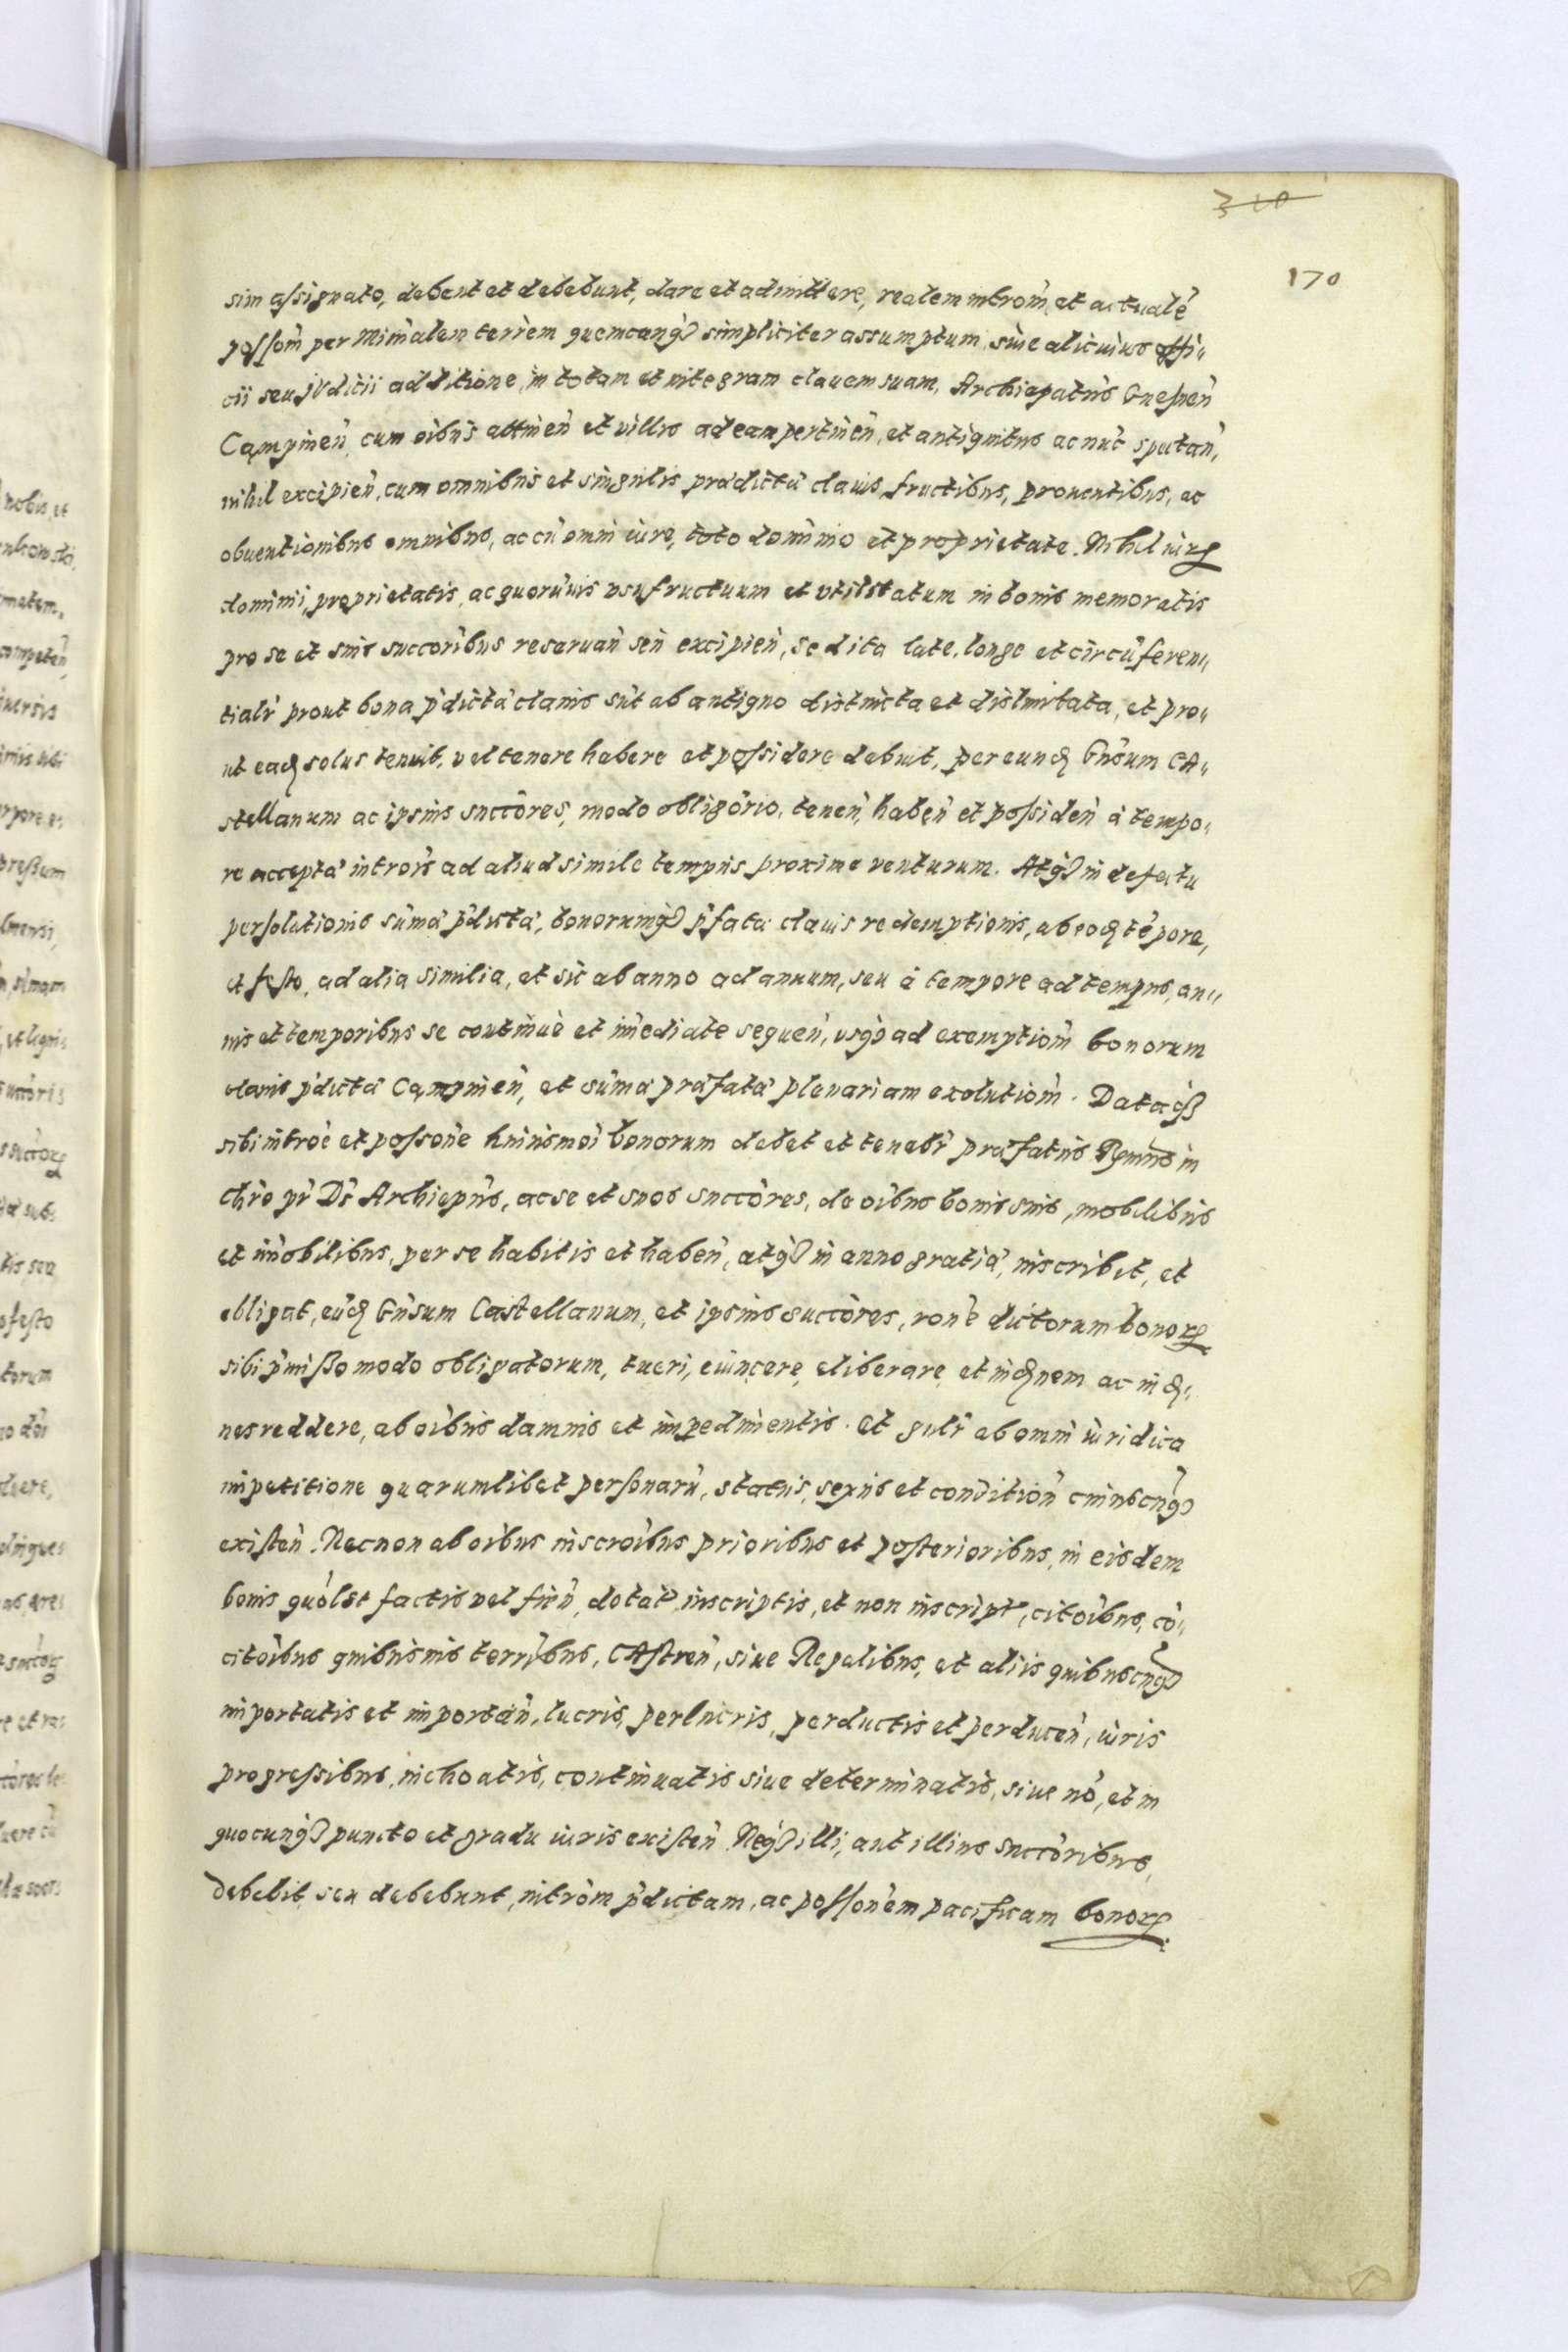 320
170
sim assignato, debent et debebunt, dare et admittere, realem introm̃, et actualẽ
possom̃ per Minĩalem terrẽm quemcunq̃ simpliciter assumptum, sine alicuius offi„
cii seu judicii additione, in totam et integram clavem suam, Archiepatus Gnesneñ
Campineñ, cum oĩbus attineñ et villis ad eam pertineñ, et antiquitus ac nũc spectañ,
nihil excipieñ, cum omnibus et singulis prædictæ clavis fructibus, proventibus, ac
obventionibus omnibus, ac cũ omni iure, toto dominio et proprietate. Nihil iurꝝ
dominii, proprietatis, ac quorũvis usufructuum et utilitatum in bonis memoratis
pro se et suis succoribus reservañ seu excipieñ, sed ita late, longe et circũferen„
tialr̃ prout bona p̃dictæ clavis sũt ab antiquo distincta et dislimitata, et pro„
ut eadȝ solus tenuit, vel tenere habere et possidere debuit, per eundȝ Gñsum CA„
stellanum ac ipsius succõres, modo obligõrio, teneñ, habeñ et possideñ à tempo„
re acceptæ introĩs ad aliud simile tempus proxime venturum. Atq̃ in defectu
persolutionis sũmæ p̃dictæ, bonorumq̃ p̃fatæ clavis redemptionis, ab eodȝ tẽpore,
et festo, ad alia similia, et sic ab anno ad annum, seu à tempore ad tempus, an„
nis et temporibus se continuè et im̃ediate sequeñ, usq̃ ad exemptiom̃ bonorum
clavis p̃dictæ Campineñ, et sũmæ præfatæ plenariam exolutiom̃. Dataqȝ
sibi introẽ et possone huiusmõi bonorum debet et tenebr̃ præfatus Rṽmus in
Chrõ pr̃ Ds Archiepũs, ac se et suos succõres, de oĩbus bonis suis, mobilibus
et im̃obilibus, per se habitis et habeñ, atq̃ in anno gratiæ, inscribit, et
obligat, eũdȝ Gñsum Castellanum, et ipsius succõres, ronẽ dictorum bonorꝝ
sibi p̃misso modo obligatorum, tueri, evincere, eliberare, et indȝnem ac indȝ„
nes reddere, ab oĩbus damnis et impedimentis. Et gñlr̃ ab omni iuridica
impetitione quarumlibet personarũ, status, sexus et condition̄ cuiuscũq̃
existeñ. Nec non ab oĩbus inscroĩbus prioribus et posterioribus, in eisdem
bonis quõlbt factis vel fieñ, dotat. inscriptis, et non inscript. citoĩbus, cõ„
citoĩbus quibusvis terr̃ĩbus, CAstreñ, sive Regalibus, et aliis quibuscũq̃
importatis et importañ, lucris, perlucris, perductis et perduceñ, iuris
progressibus, inchoatis, continuatis sive determinatis, sive nõ, et in
quocunq̃ puncto et gradu iuris existeñ. Neq̃ illi, aut illius succõribus,
debebit, seu debebunt, introm̃ p̃dictam, ac possonem pacificam bonorꝝ